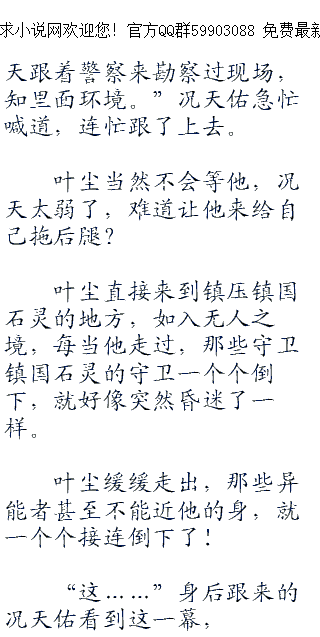 求小说网欢迎您！官方QQ群59903088 免费最新
天跟着警察来勘察过现场，
知里面环境。”况天佑急忙
喊道，连忙跟了上去。
叶尘当然不会等他，况
天太弱了，难道让他来给自
己拖后腿？
叶尘直接来到镇压镇国
石灵的地方，如入无人之
境，每当他走过，那些守卫
镇国石灵的守卫一个个倒
下，就好像突然昏迷了一
样。
叶尘缓缓走出，那些异
能者甚至不能近他的身，就
一个个接连倒下了！
“这……”身后跟来的
况天佑看到这一幕，